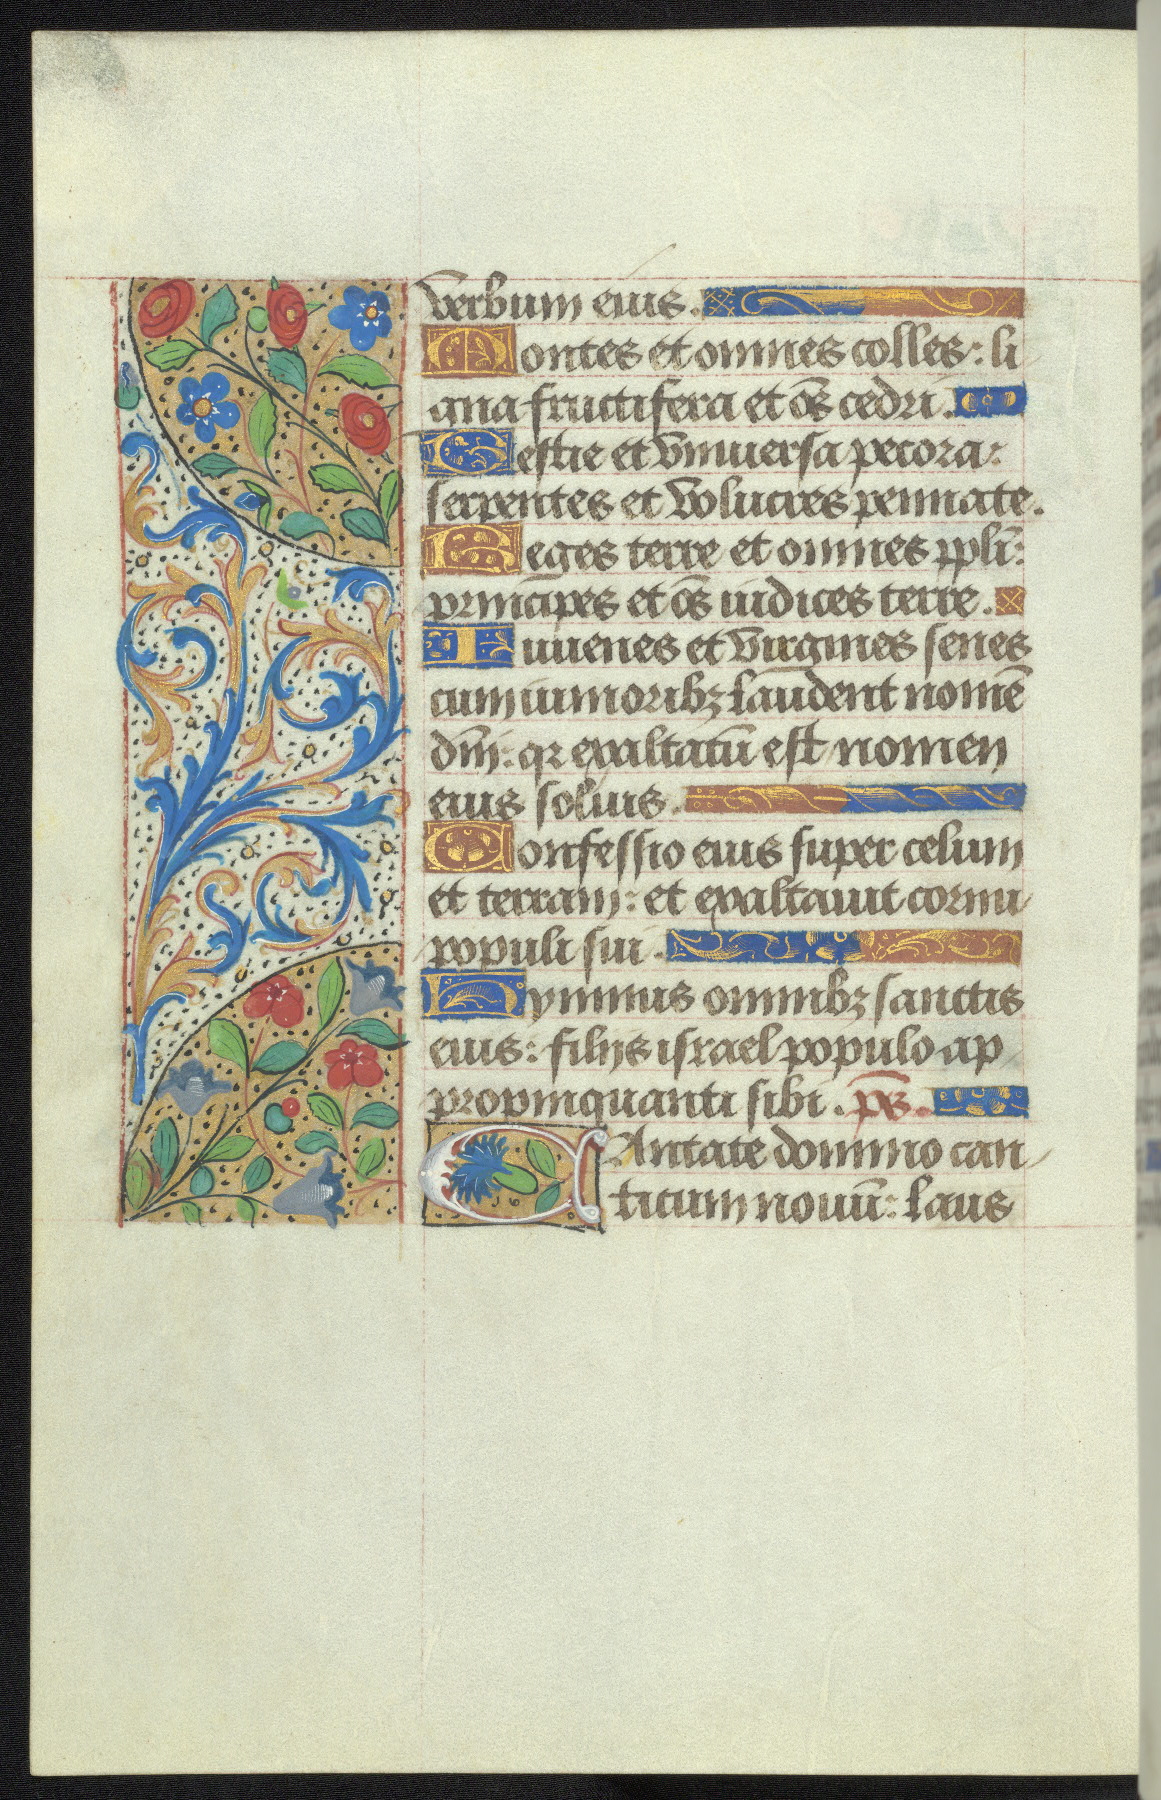 verbum eius.
Montes et omnes colles: li
gna fructifera et oēs cedri.
Bestie et vniuersa pecora:
serpentes et volucres pennate.
Reges terre et omnes ppl̄i:
principes et oēs iudices terre.
Iuuenes et virgines senes
cum iunioribꝫ laudent nomē
dn̄i: qꝛ exaltatū est nomen
eius solius.
Confessio eius super celum
et terram: et exaltauit cornu
populi sui.
Hymnus omnibꝫ sanctis
eius: filijs israel populo ap
propinquanti sibi. ps̄.
CAntate domino can
ticum nouū: laus